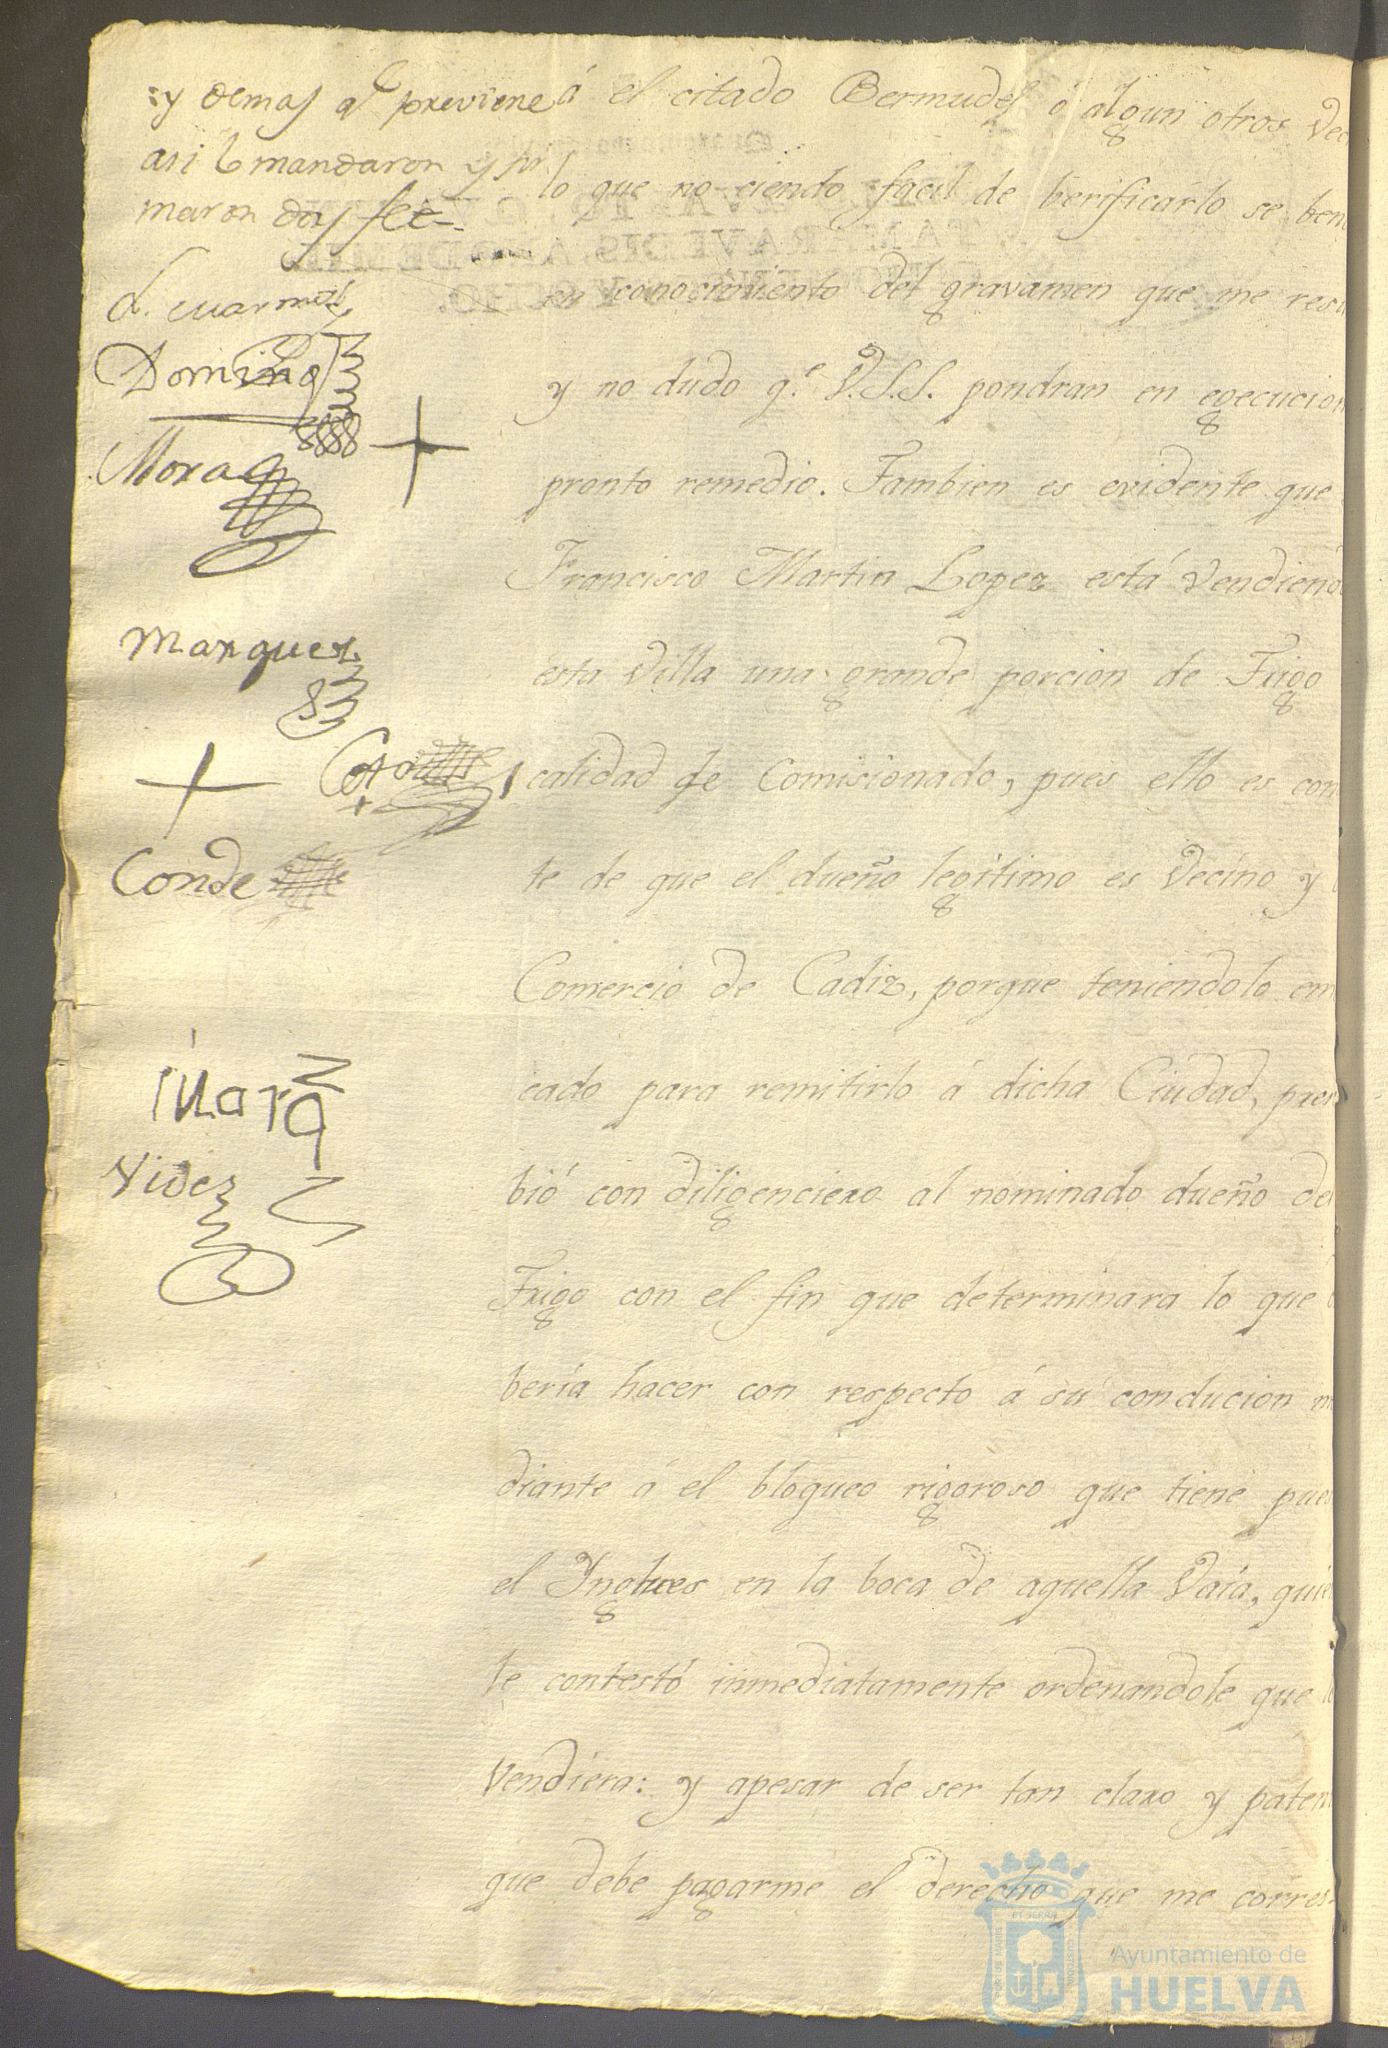 y demas q.e previene
asi lo mandaron y fir
maron doy fee
Doming
Mora
Marquez
Conde
Mora
Vides
á el citado Bermudes ó algun otros Vec
lo que no ciendo facil de berificarlo se ben
en conocimiento del gravamen que me resu
y no dudo q.e V.S.S. pondran en egecucion
pronto remedio. Tambien es evidente que
Francisco Martin Lopez está Vendiend
esta Villa una grande porcion de Trigo
calidad de Comisionado, pues ello es con
te de que el dueño legitimo es Vecino y
Comercio de Cadiz, porque teniendolo em
cado para remitirlo á dicha Ciudad,
bió con diligenciero al nominado dueño de
Trigo con el fin que determinara lo que
bería hacer con respecto á su conducion m
diante á el bloqueo rigoroso que tiene pues
el Yngles en la boca de aquella Vaía, quie
le contestó inmediatamente ordenandole que l
Vendiera: y apesar de ser tan claro y paten
que debe pagarme el derecho que me corres-
Ayuntamiento de
HUELVA